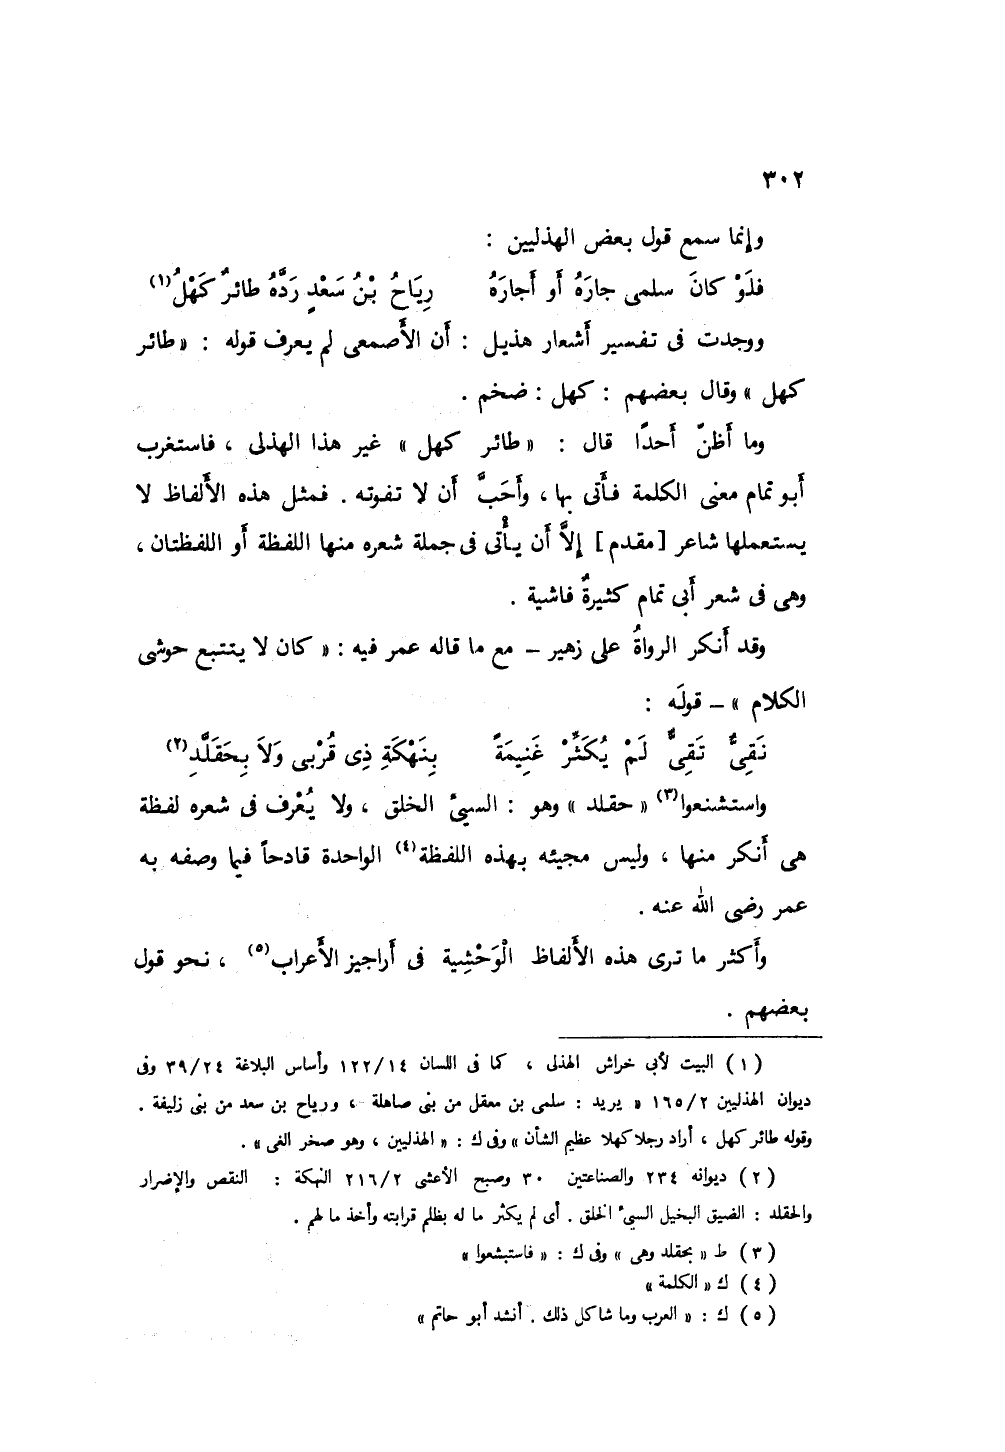 ٣٠٢
وإنما سمع قول بعض الهذليين :
فلَوْ كانَ سلمى جارَهُ أو أَجارَهُ رِيَاحُ بْنُ سَعْدٍ رَدَّهُ طائرٌ كَهْلُ(١)
ووجدت فى تفسير أشعار هذيل : أن الأَصمعى لم يعرف قوله : « طائر
كهل » وقال بعضهم : كهل : ضخم .
وما أَظنّ أَحدًا قال : « طائر كهل » غير هذا الهذلى ، فاستغرب
أَبو تمام معنى الكلمة فأَتى بها ، وأَحَبَّ أَن لا تفوته . فمثل هذه الأَلفاظ لا
يستعملها شاعر [ مقدم ] إلاَّ أَن يأْتى فى جملة شعره منها اللفظة أَو اللفظتان ،
وهى فى شعر أَبى تمام كثيرةٌ فاشية .
وقد أَنكر الرواةُ على زهير – مع ما قاله عمر فيه : « كان لا يتتبع حوشى
الكلام » – قولَه :
نَقِىٌّ تَقِىٌّ لَمْ يُكَثِّرْ غَنِيمَةً بِنَهْكَةِ ذِى قُرْبى وَلاَ بِحَقَلَّدِ(٢)
واستشنعوا(٣) « حقلد » وهو : السيئ الخلق ، ولا يُعْرف فى شعره لفظة
هى أَنكر منها ، وليس مجيئه بهذه اللفظة(٤) الواحدة قادحاً فيما وصفه به
عمر رضى الله عنه .
وأَكثر ما ترى هذه الأَلفاظ الْوَحْشِية فى أَراجيز الأَعراب(٥) ، نحو قول
بعضهم .
( ١ ) البيت لأبى خراش الهذلى ، كما فى اللسان ١٢٢/١٤ وأساس البلاغة ٣٩/٢٤ وفى
ديوان الهذليين ١٦٥/٢ « يريد : سلمى بن معقل من بنى صاهلة ، ورياح بن سعد من بنى زليفة .
وقوله طائر كهل ، أراد رجلا كهلا عظيم الشأن » وفى ك : « الهذليين ، وهو صخر الغى » .
( ٢ ) ديوانه ٢٣٤ والصناعتين ٣٠ وصبح الأعشى ٢١٦/٢ النهكة : النقص والإضرار
والحقلد : الضيق البخيل السىء الخلق . أى لم يكثر ما له بظلم قرابته وأخذ ما لهم .
( ٣ ) ط « بحقلد وهى » وفى ك : « فاستبشعوا »
( ٤ ) ك « الكلمة »
( ٥ ) ك : « العرب وما شاكل ذلك . أنشد أبو حاتم »